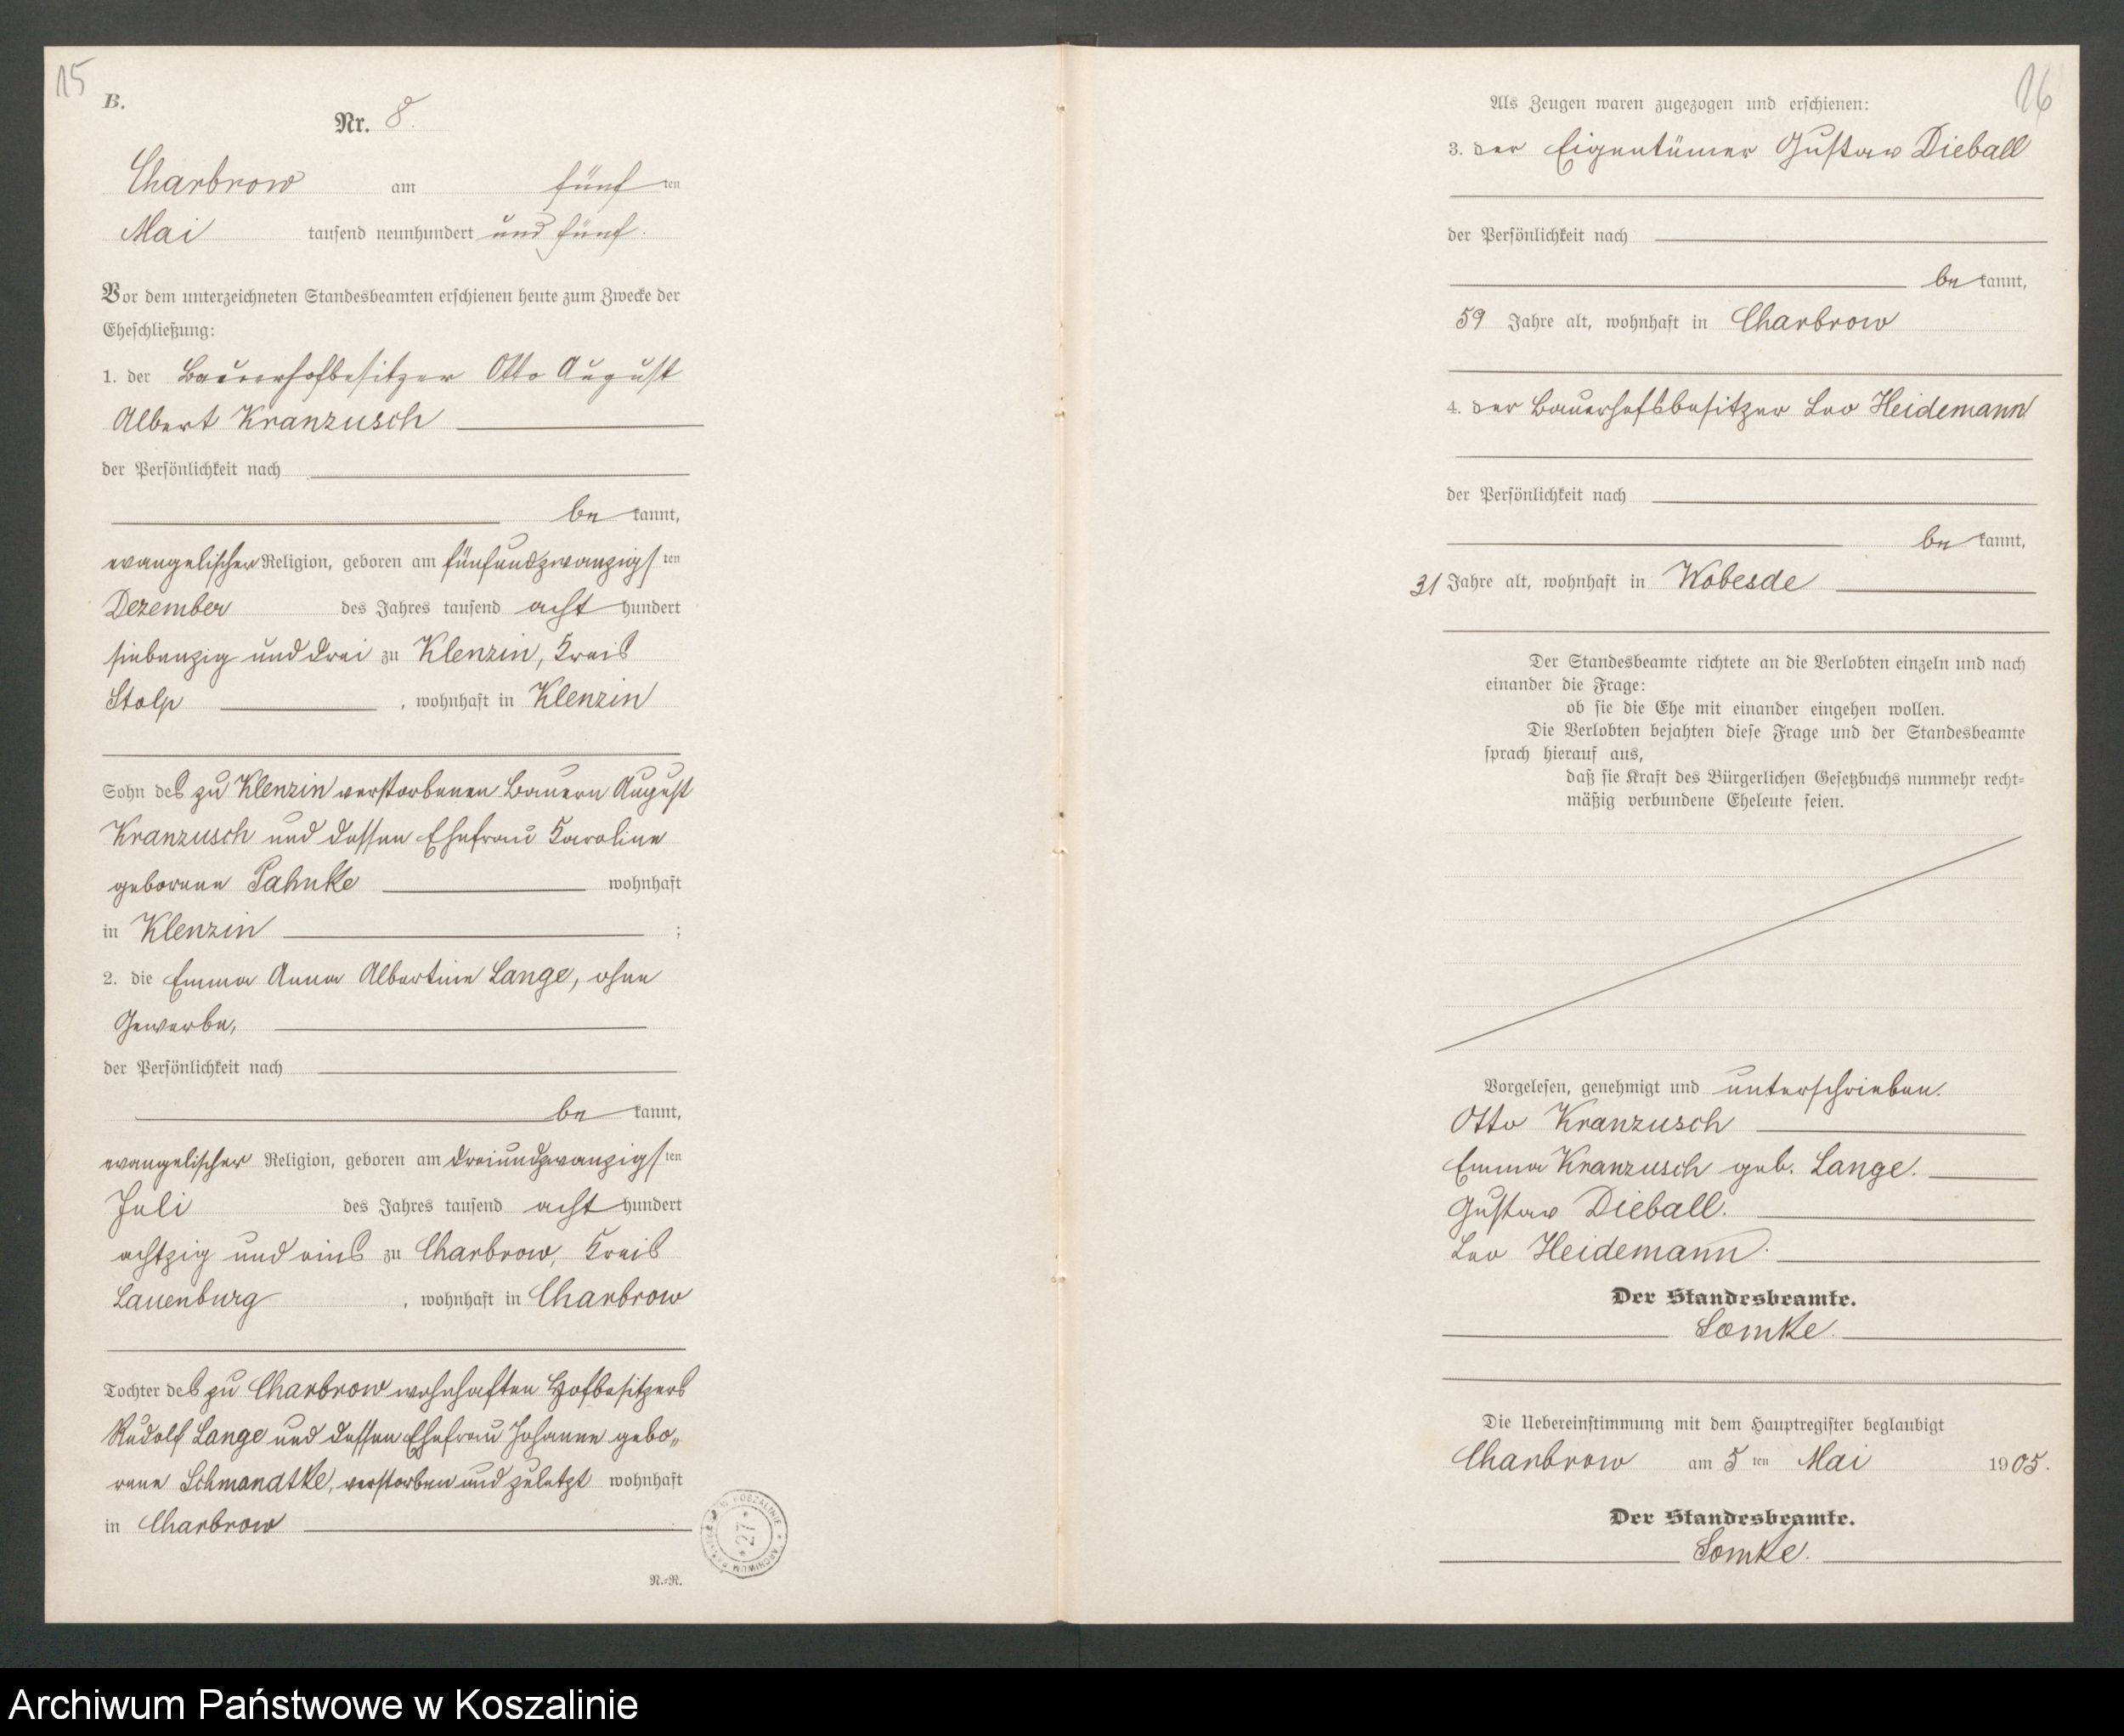 15
B.
Nr. 8.
Charbrow am fünf ten
Mai tausend neunhundert und fünf.
Vor dem unterzeichneten Standesbeamten erschienen heute zum Zwecke der
Eheschließung:
1. der Bauerhofbesitzer Otto August
Albert Kranzusch
der Persönlichkeit nach
be kannt,
evangelischer Religion, geboren am fünfundzwanzigsten
Dezember des Jahres tausend acht hundert
siebenzig und drei zu Klenzin, Kreis
Stolp, wohnhaft in Klenzin
Sohn des zu Klenzin verstorbenen Bauern August
Kranzusch und dessen Ehefrau Karoline
geborene Pahnke wohnhaft
in Klenzin ;
2. die Emma Anna Albertine Lange, ohne
Gewerbe,
der Persönlichkeit nach
be kannt,
evangelischer Religion, geboren am dreiundzwanzigsten
Juli des Jahres tausend acht hundert
achtzig und eins zu Charbrow, Kreis
Lauenburg, wohnhaft in Charbrow
Tochter des zu Charbrow wohnhaften Hofbesitzers
Rudolf Lange und dessen Ehefrau Johanne gebo„
rene Schmandtke, verstorben und zuletzt wohnhaft
in Charbrow
ARCHIWUM KOSZALINIE * 27 *
N.-N.
16
Als Zeugen waren zugezogen und erschienen:
3. der Eigentümer Gustav Dieball
der Persönlichkeit nach
be kannt,
59 Jahre alt, wohnhaft in Charbrow
4. der Bauerhofsbesitzer Leo Heidemann
der Persönlichkeit nach
be kannt,
31 Jahre alt, wohnhaft in Wobesde
Der Standesbeamte richtete an die Verlobten einzeln und nach
einander die Frage:
ob sie die Ehe mit einander eingehen wollen.
Die Verlobten bejahten diese Frage und der Standesbeamte
sprach hierauf aus,
daß sie Kraft des Bürgerlichen Gesetzbuchs nunmehr recht-
mäßig verbundene Eheleute seien.
Vorgelesen, genehmigt und unterschrieben.
Otto Kranzusch
Emma Kranzusch geb. Lange.
Gustav Dieball.
Leo Heidemann.
Der Standesbeamte.
Lomke.
Die Uebereinstimmung mit dem Hauptregister beglaubigt
Charbrow am 5 ten Mai 1905.
Der Standesbeamte.
Lomke.
Archiwum Państwowe w Koszalinie